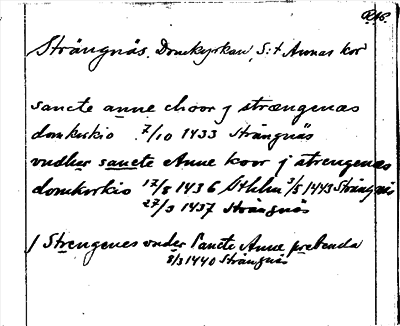 Strängnäs. Domkyrkan, S:t Annas kor
sancte anne choor j strængenæs
domkirkio 7/10 1433 Strängnäs
vndher sancte Anne koor j strengenæs
domkorkio 17/8 1436, Sthlm 3/5 1443 Strängnäs
27/3 1437 Strängnäs
j Strengenes vnder Sancte Anne prebenda
8/3 1440 Strängnäs